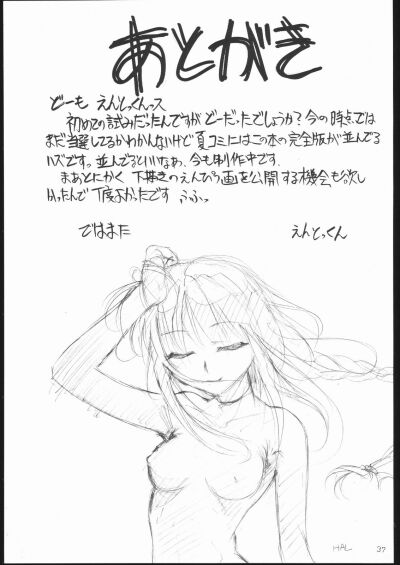 あとがき
どーも えんとっくんっス
初めての試みだったんですがどーだったでしょうか？今の時点では
まだ当選してるかわかんないけど夏コミにはこの本の完全版が並んでる
ハズですっ 並んでるといいなぁ、今も制作中です。
まぁとにかく 下描きのえんぴつ画を公開する機会も欲し
かったんで丁度よかったです ふふっ
ではまた
えんとっくん
HAL
37